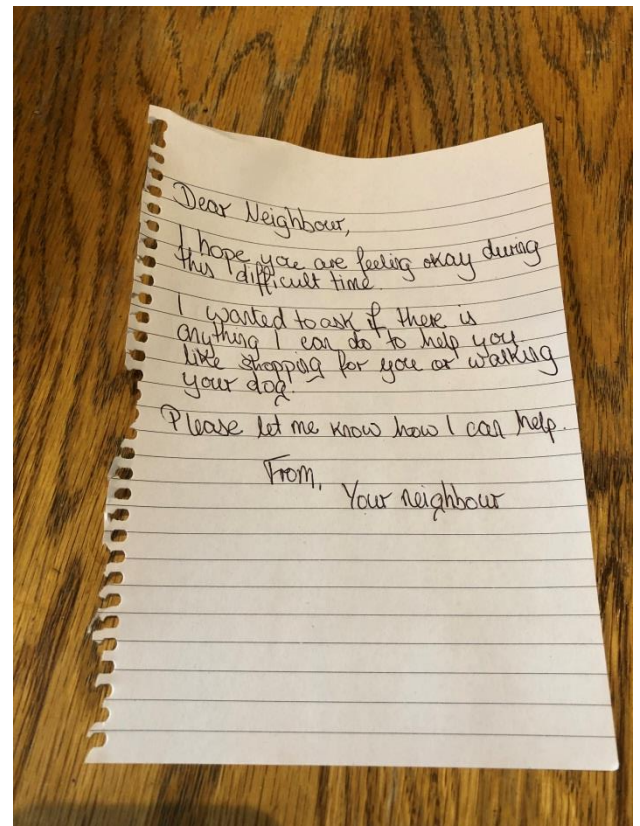 Dear Neighbour,
I hope you are feeling okay during
this difficult time.
I wanted to ask if there is
anything I can do to help you
like shopping for you or walking
your dog.
Please let me know how I can help.
From,
Your neighbour